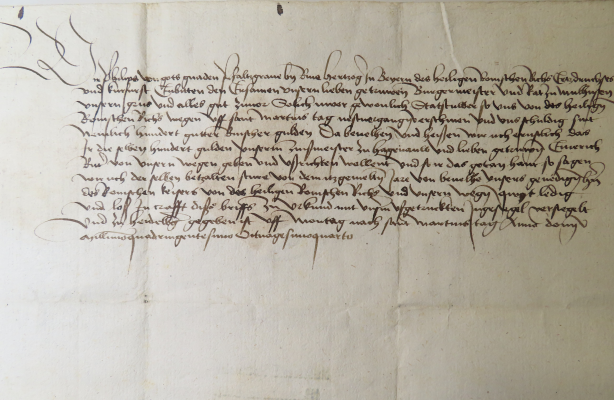 Wir Philips von gots gnaden Pfaltzgraue by Rine Hertzog in Beyern des heiligen Romschen Richs Ertzdruchses
vnd kurfurst Enbieten den Ersamen vnsern lieben getruwen Burgermeister vnd Rat zu Mulhusen
vnsern grus vnd alles gut zuuor Solich uwer gewonlich Statstuwer so uns von des heiligen
Romschen Richs wegen vff sant Martins tag nestuergangen erschinen vnd vns schuldig sint
nemlich hundert gutter Rinscher gulden Da beuelhen vnd heissen wir uch ernstlich das
Ir die selben hundert gulden vnserm zinsmeister zu hagenauw vnd lieben getruwen Emerich
von vnsern wegen geben vnd vsrichten wellent vnd so ir das getan hant so sagen
wir uch der selben betzalten sture von dem jare von beuelhe vnsers genedigsten hern
des Romschen keisers von des heiligen Romschen Richs vnd vnsern wegen quyt ledig
vnd loß In crafft disß brieffs zu vrkund mit vnserm vffgetruckten Ingesiegel versiegelt
vnd zu heidelberg gegeben ist vff montag nach sant martins tag Anno domini
Millesimoquadringentesimo Octuagesimoquarto